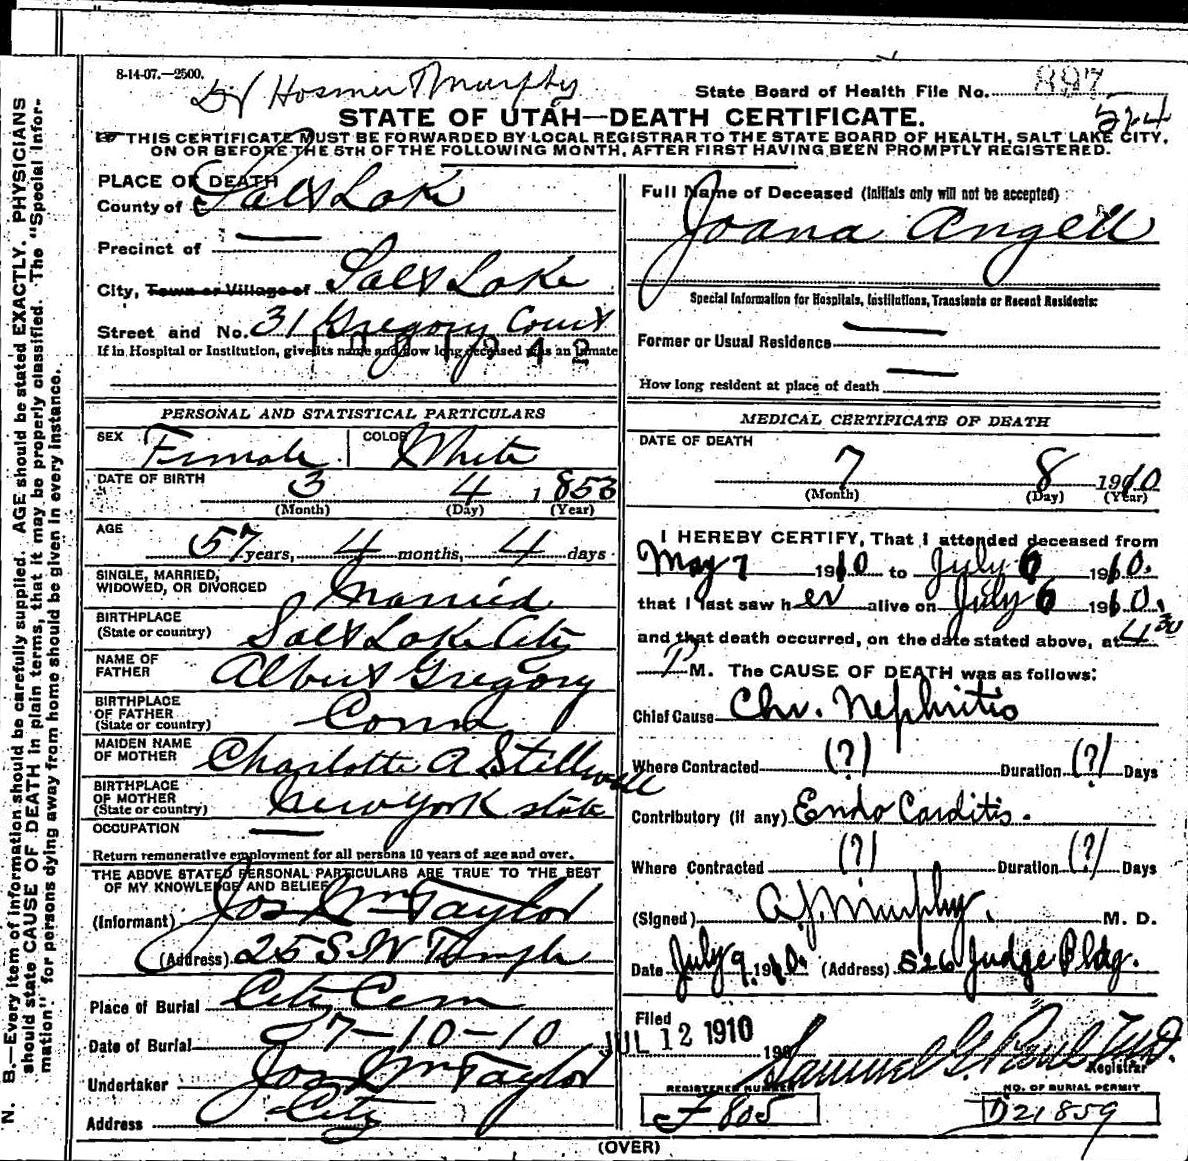 8-14-07.—2500.
Dr Hosmer Murphy
State Board of Health File No. 897
224
STATE OF UTAH—DEATH CERTIFICATE.
THIS CERTIFICATE MUST BE FORWARDED BY LOCAL REGISTRAR TO THE STATE BOARD OF HEALTH, SALT LAKE CITY,
ON OR BEFORE THE 5TH OF THE FOLLOWING MONTH, AFTER FIRST HAVING BEEN PROMPTLY REGISTERED.
PLACE OF DEATH
County of Salt Lake
Precinct of —
City, Town or Village of Salt Lake
Street and No. 31 Gregory Court
If in Hospital or Institution, give its name and how long deceased was an inmate
PERSONAL AND STATISTICAL PARTICULARS
SEX Female COLOR White
DATE OF BIRTH 3 4 1853
(Month) (Day) (Year)
AGE 57 years, 4 months, 4 days
SINGLE, MARRIED,
WIDOWED, OR DIVORCED Married
BIRTHPLACE
(State or country) Salt Lake City
NAME OF
FATHER Albert Gregory
BIRTHPLACE
OF FATHER
(State or country) Conn
MAIDEN NAME
OF MOTHER Charlotte A Stillwell
BIRTHPLACE
OF MOTHER
(State or country) New York state
OCCUPATION —
Return remunerative employment for all persons 10 years of age and over.
THE ABOVE STATED PERSONAL PARTICULARS ARE TRUE TO THE BEST
OF MY KNOWLEDGE AND BELIEF
(Informant) Jos Wm Taylor
(Address) 25 S. W Temple
Place of Burial City Cem
Date of Burial 7-10-10
Undertaker Jos Wm Taylor
Address City
Full Name of Deceased (Initials only will not be accepted)
Joana Angell
Special Information for Hospitals, Institutions, Transients or Recent Residents:
Former or Usual Residence —
How long resident at place of death —
MEDICAL CERTIFICATE OF DEATH
DATE OF DEATH
7 8 1910
(Month) (Day) (Year)
I HEREBY CERTIFY, That I attended deceased from
May 7 1910 to July 6 1910.
that I last saw her alive on July 6 1910.
and that death occurred, on the date stated above, at 4 30
P M. The CAUSE OF DEATH was as follows:
Chief Cause Chr. Nephritis
Where Contracted (?) Duration (?) Days
Contributory (if any) Endo Carditis.
Where Contracted (?) Duration (?) Days
(Signed) A.J. Murphy. M. D.
Date July 9. 1910. (Address) 526 Judge Bldg.
Filed
JUL 12 1910 190
Samuel G. Paul M.D.
Registrar
REGISTERED NUMBER
F 805
NO. OF BURIAL PERMIT
D21859
(OVER)
N. B.—Every item of information should be carefully supplied. AGE should be stated EXACTLY. PHYSICIANS
should state CAUSE OF DEATH in plain terms, that it may be properly classified. The "Special Infor-
mation" for persons dying away from home should be given in every instance.